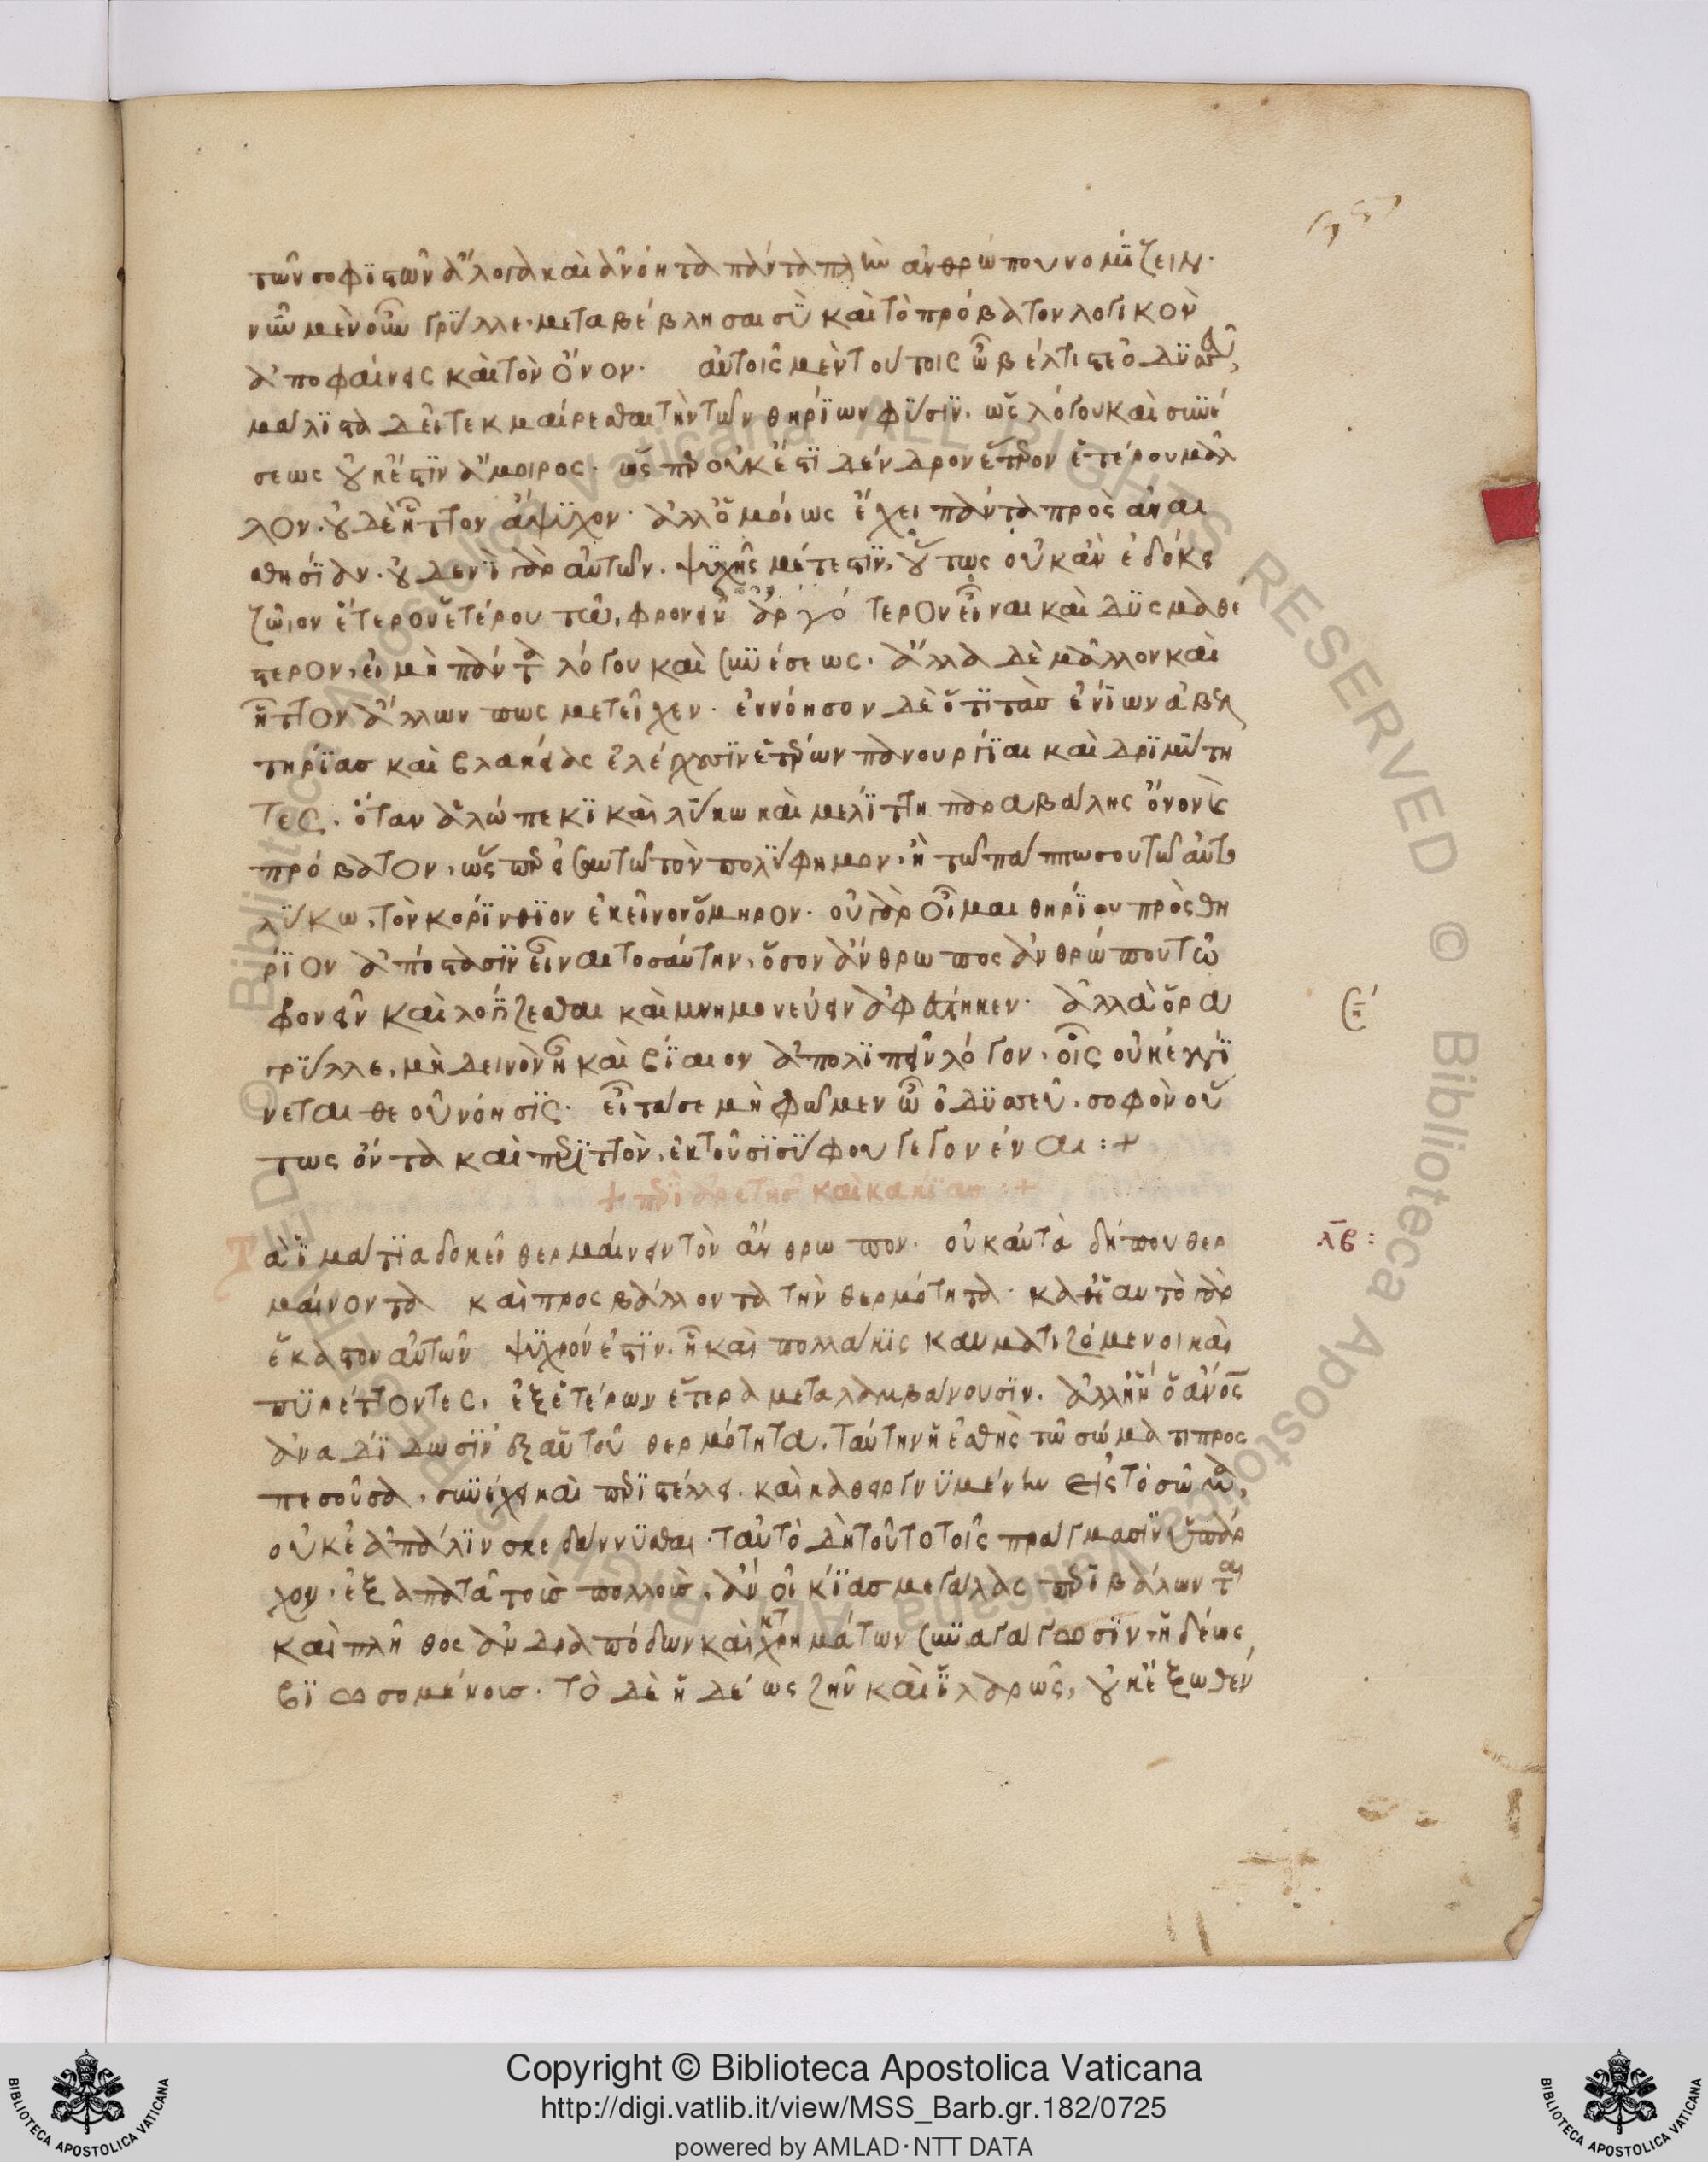 τῶν σοφιστῶν ἄλογα καὶ ἀνόητα πάντα πλὴν ἀνθρώπου νομίζειν·
νῦν μὲν οὖν Γρύλλε· μεταβέβλησαι σὺ καὶ τὸ πρόβατον λογικὸν
ἀποφαίνεις καὶ τὸν ὄνον· αὐτοῖς μὲν τούτοις ὦ βέλτιστε ὀδυσσεῦ,
μάλιστα δεῖ τεκμαίρεσθαι τὴν τῶν θηρίων φύσιν, ὡς λόγου καὶ συνέ
σεως οὐκ ἔστιν ἄμοιρος· ὡς γὰρ οὐκ ἔστι δένδρον ἕτερον ἑτέρου μᾶλ
λον· οὐδὲ ἧττον ἄψυχον· ἀλλ' ὁμοίως ἔχει πάντα πρὸς ἀναι
σθησίαν· οὐδενὶ γὰρ αὐτῶν· ψυχῆς μέτεστιν, οὕτως οὐκ ἂν ἐδόκει
ζῷον ἕτερον ἑτέρου τῷ φρονεῖν ἀργότερον εἶναι καὶ δυσμαθέ
στερον, εἰ μὴ πάντα λόγου καὶ συνέσεως· ἄλλα δὲ μᾶλλον καὶ
ἧττον ἄλλων πως μετεῖχεν· ἐννόησον δὲ ὅτι τὰς ἐνίων ἀβελ
τηρίας καὶ βλακείας ἐλέγχουσιν ἑτέρων πανουργίαι καὶ δριμύτη
τες· ὅταν ἀλώπεκι καὶ λύκω καὶ μελίττη παραβάλης ὄνον καὶ
πρόβατον, ὥσπερ εἰ σαυτῶ τὸν πολύφημον, ἢ τῶ πάππω σου τῶ αὐτο
λύκω, τὸν κορίνθιον ἐκεῖνον ὅμηρον· οὐ γὰρ οἶμαι θηρίου πρὸς θη
ρίον ἀπόστασιν εἶναι τοσαύτην, ὅσον ἄνθρωπος ἀνθρώπου τῶ
φρονεῖν καὶ λογίζεσθαι καὶ μνημονεύειν ἀφέστηκεν· ἀλλὰ ὅρα
γρύλλε, μὴ δεινὸν ἦ καὶ βίαιον ἀπολιπεῖν λόγον, οἷς οὐκ ἐγγί
νεται θεοῦ νόησις· εἶτά σε μὴ φῶμεν ὦ ὀδυσσεῦ, σοφὸν οὕ
τως ὄντα καὶ περιττὸν, ἐκ τοῦ σισύφου γεγονέναι :+
+ περὶ ἀρετῆς καὶ κακίας :+
Τὰ ἱμάτια δοκεῖ θερμαίνειν τὸν ἄνθρωπον· οὐκ αὐτὰ δήπου θερ
μαίνοντα καὶ προσβάλλοντα τὴν θερμότητα· καθ' ἑαυτὸ γὰρ
ἕκαστον αὐτῶν ψυχρόν ἐστιν, ἧ καὶ πολλάκις καυματιζόμενοι καὶ
πυρέττοντες, ἐξ ἑτέρων ἕτερα μεταλαμβάνουσιν, ἀλλ' ἣν ὁ ἄνος
ἀναδίδωσιν ἐξ αὑτοῦ θερμότητα, ταύτην ἡ ἐσθὴς τῶ σώματι προς
πεσοῦσα, συνέχει καὶ περιστέλλει, καὶ καθειργνυμένην εἰς τὸ σῶμα,
οὐκ ἐᾶ πάλιν σκεδάννυσθαι· ταὐτὸ δὴ τοῦτο τοῖς πράγμασιν ὑπάρ
χον, ἐξαπατᾶ τοὺς πολλοὺς, ἂν οἰκίας μεγάλας περιβάλωνται
καὶ πλῆθος ἀνδραπόδων καὶ χρημάτων συναγάγωσιν ἡδέως
βιωσομένους· τὸ δὲ ἡδέως ζῆν καὶ ἱλαρῶς, οὐκ ἔξωθέν
λβ:
Copyright © Biblioteca Apostolica Vaticana
http://digi.vatlib.it/view/MSS_Barb.gr.182/0725
powered by AMLAD·NTT DATA
BIBLIOTECA APOSTOLICA VATICANA
BIBLIOTECA APOSTOLICA VATICANA